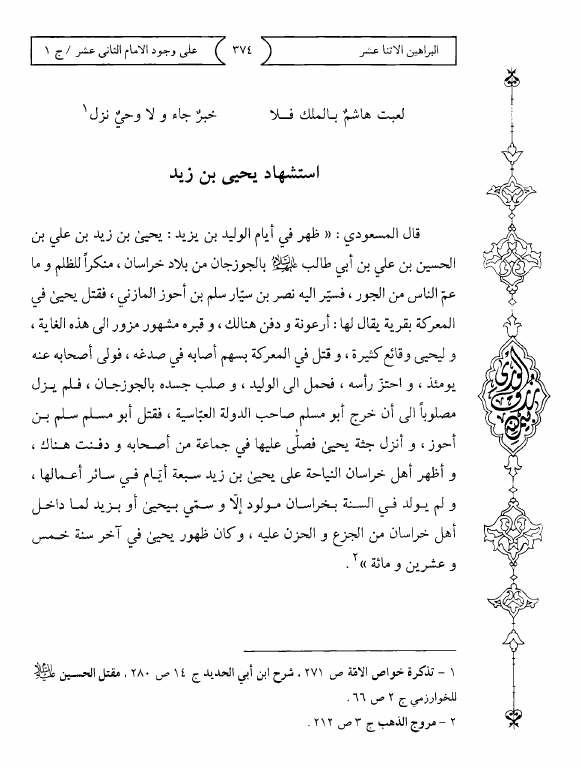 البراهين الاثنا عشر
٣٧٤
على وجود الامام الثاني عشر / ج ١
لعبت هاشمٌ بالملك فلا خبرٌ جاء و لا وحيٌ نزل١
استشهاد يحيى بن زيد
قال المسعودي : « ظهر في أيام الوليد بن يزيد : يحيىٰ بن زيد بن علي بن
الحسين بن علي بن أبي طالب بالجوزجان من بلاد خراسان ، منكراً للظلم و ما
عمّ الناس من الجور ، فسيّر اليه نصر بن سيّار سلم بن أحوز المازني ، فقتل يحيىٰ في
المعركة بقرية يقال لها : أرعونة و دفن هنالك ، و قبره مشهور مزور الى هذه الغاية ،
و ليحيى وقائع كثيرة ، و قتل في المعركة بسهم أصابه في صدغه ، فولى أصحابه عنه
يومئذ ، و احتزّ رأسه ، فحمل الى الوليد ، و صلب جسده بالجوزجـان ، فـلم يـزل
مصلوباً الى أن خرج أبو مسلم صاحب الدولة العبّاسية ، فقتل أبو مسلم سلم بـن
أحوز ، و أنزل جثة يحيىٰ فصلّى عليها في جماعة من أصحابه و دفـنت هـناك ،
و أظهر أهل خراسان النياحة على يحيىٰ بن زيد سبعة أيّام فـي سـائر أعـمالها ،
و لم يولد فـي السـنة بـخراسان مـولود إلّا و سـمّي بـيحيىٰ أو بـزيد لمـا داخـل
أهل خراسان من الجزع و الحزن عليه ، و كان ظهور يحيىٰ في آخر سنة خـمس
و عشرين و مائة »٢.
١ – تذكرة خواص الامّة ص ٢٧١ ، شرح ابن أبي الحديد ج ١٤ ص ٢٨٠ ، مقتل الحسين
للخوارزمي ج ٢ ص ٦٦ .
٢ – مروج الذهب ج ٣ ص ٢١٢ .